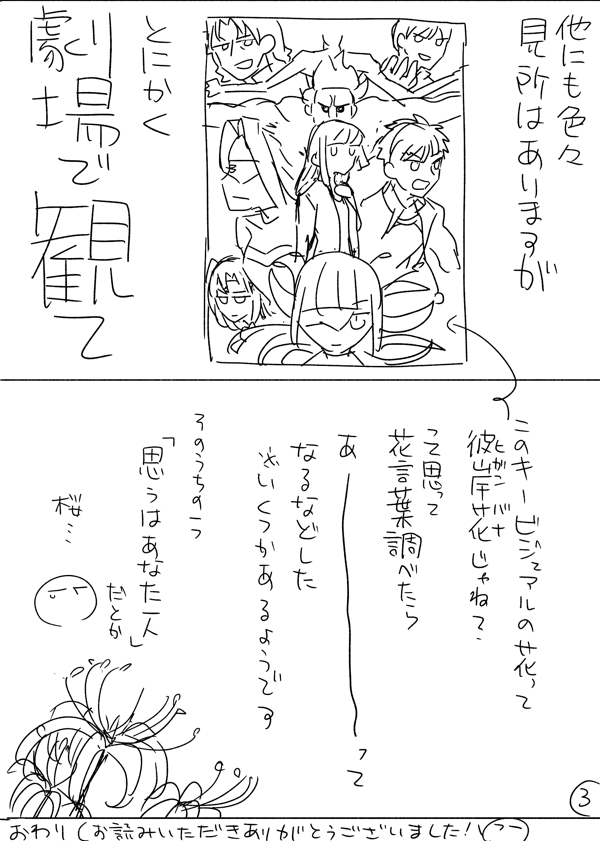 他にも色々
見所はありますが
とにかく
劇場で
観て
このキービジュアルの花って
彼岸花じゃね?
ヒガンバナ
って思って
花言葉調べたら
あーーーって
なるなどした
※いくつかあるようです
そのうちの一つ
「思うはあなた一人」
だとか
桜…
3
おわり(お読みいただきありがとうございました!)